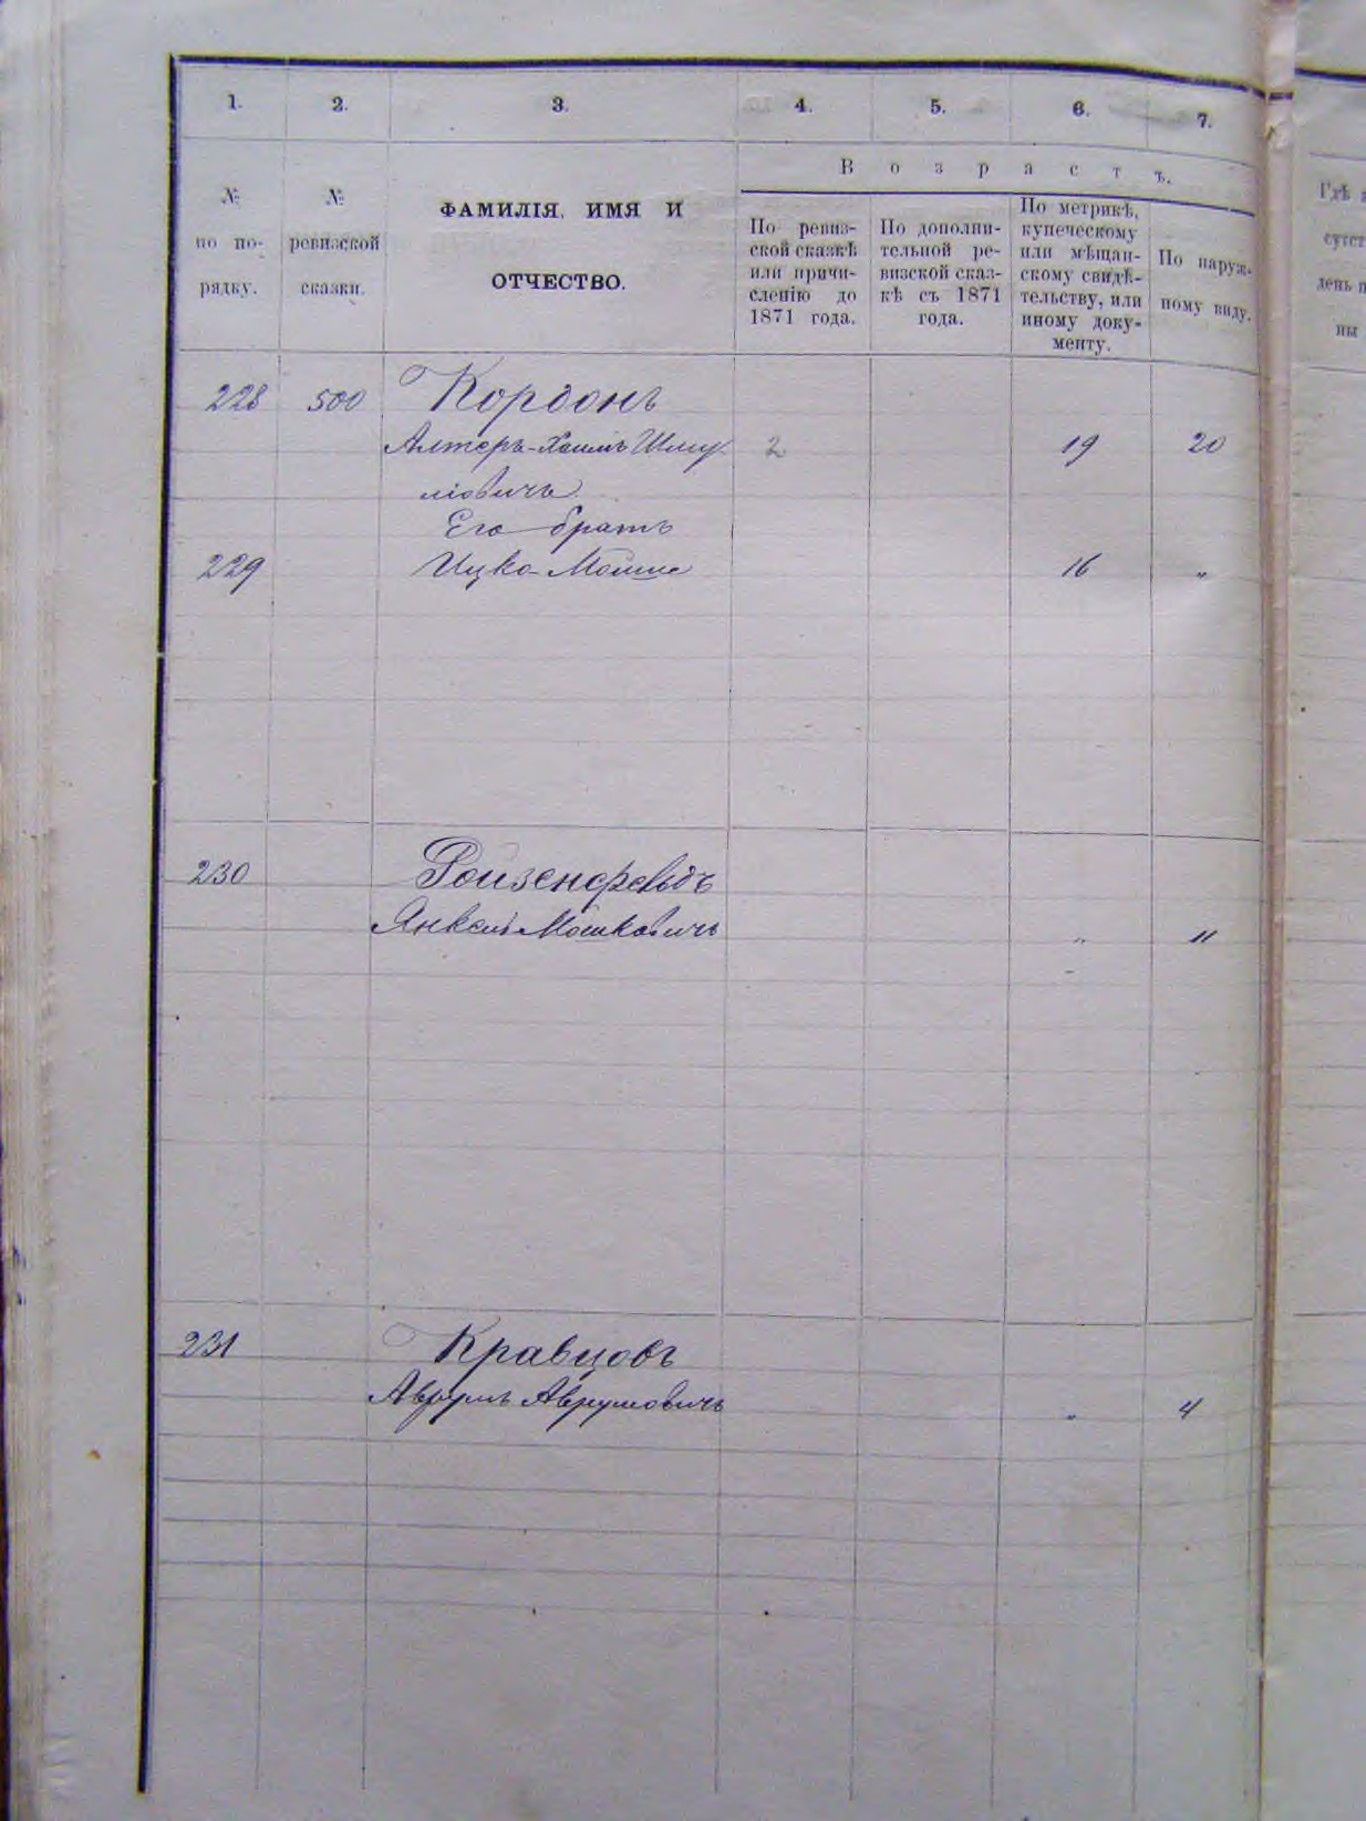 1. 2. 3. 4. 5. 6. 7.
Возрастъ.
№
по по-
рядку.
№
ревизской
сказки.
ФАМИЛІЯ, ИМЯ И
ОТЧЕСТВО.
По ревиз-
ской сказкѣ
или причи-
сленію до
1871 года.
По дополни-
тельной ре-
визской сказ-
кѣ съ 1871
года.
По метрикѣ,
купеческому
или мѣщан-
скому свидѣ-
тельству, или
иному доку-
менту.
По наруж-
ному виду.
Гдѣ
сутст
день п
ны
228 500 Кордонъ
Алтеръ-Хаимъ Шму- 2 19 20
ліовичъ
Его братъ
229 Ицко-Мошие 16 "
230 Ройзенфельдъ
Янкель Мошковичъ " 11
231 Кравцовъ
Аврумъ Аврумовичъ " 4